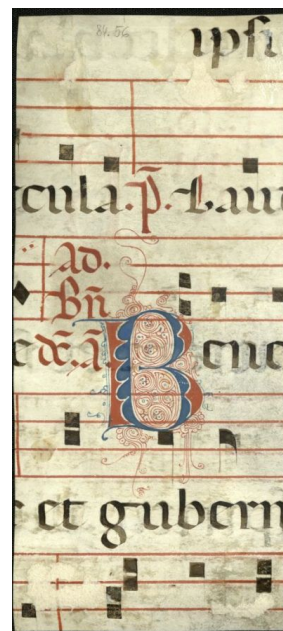 84.56
ipsi
cula. P̄. Lau
Ad.
Bn̄
e dc̄. ā. Bene
et gubern